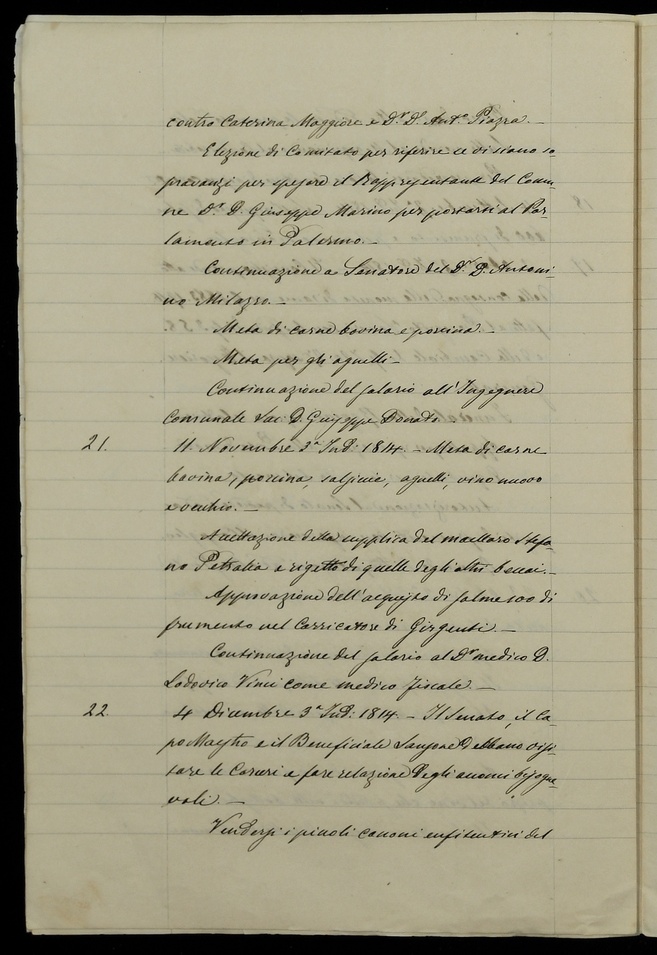 contro Caterina Maggiore e Dr. Dn. Ant.o Piazza. –
Elezione di Comitato per riferire se vi siano so-
pravanzi per spesare il Rappresentante del Comu-
ne Dr. D. Giuseppe Marino per portarsi al Par-
lamento in Palermo. –
Continuazione a Senatore del Dr. D. Antoni-
no Milazzo. –
Meta di carne bovina e porcina. –
Meta per gli agnelli –
Continuazione del salario all'Ingegnere
Comunale Sac. D. Giuseppe Donati
21. 11 Novembre 3a Ind: 1814. – Meta di carne
bovina, porcina, salsiccie, agnelli, vino nuovo
e vecchio. –
Accettazione della supplica del macellaro Stefa-
no Petralia e rigetto di quelle degli altri beccai. –
Approvazione dell'acquisto di salme 500 di
frumento nel Carricatore di Girgenti. –
Continuazione del salario al Dr. medico D.
Lodovico Vinci come medico fiscale. –
22 4 Dicembre 3a Ind: 1814. – Il Senato, il Ca-
po Maestro e il Beneficiale Sanzone debbano visi-
tare le Carceri e fare relazione degli acconci bisogne-
voli. –
Vendersi i piccoli canoni enfiteutici del